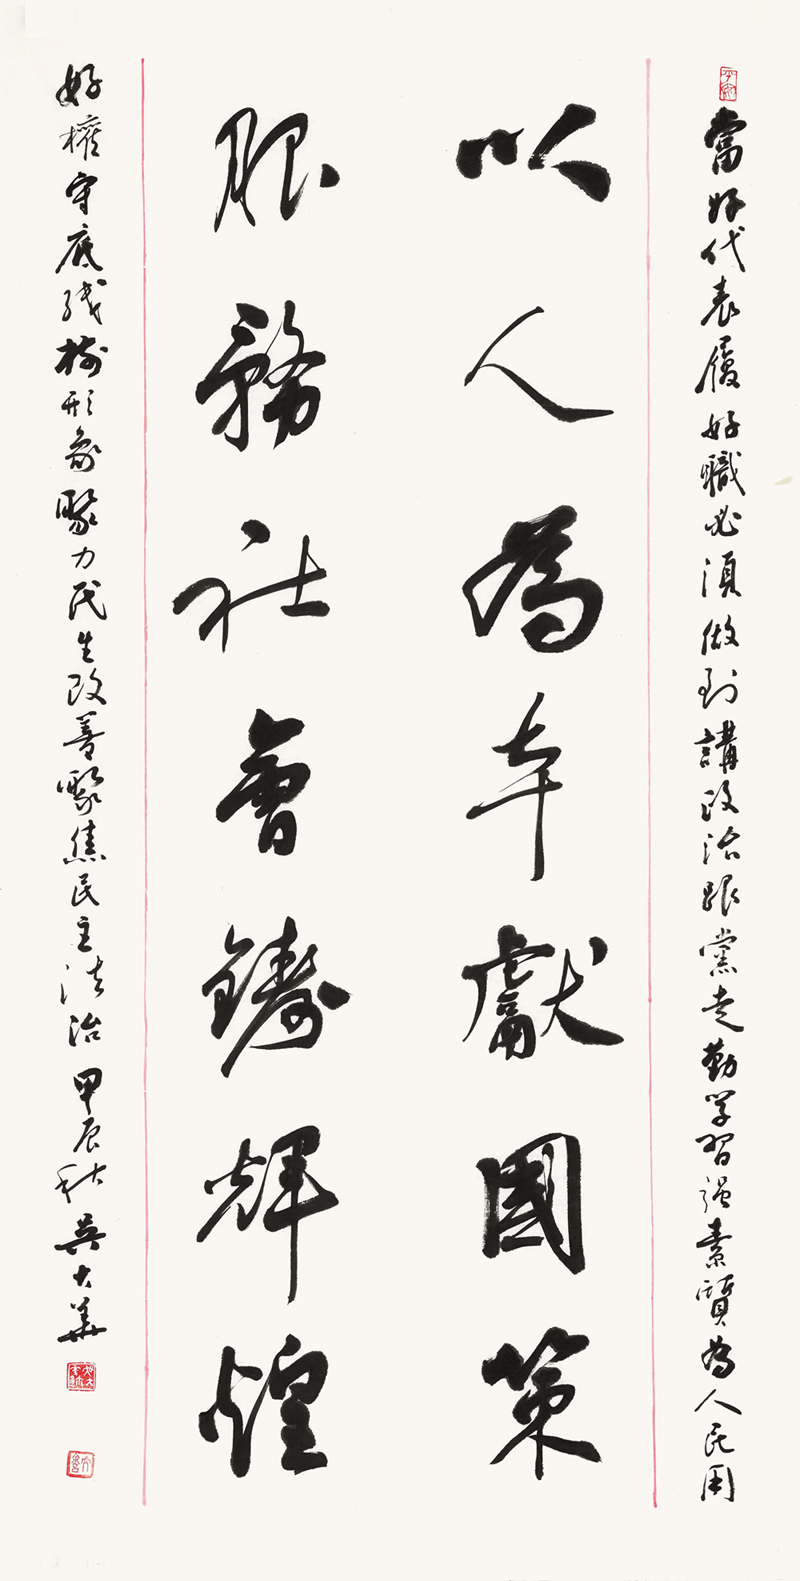 當好代表履好職必須做到講政治跟黨走勤学習强素質為人民用
以人為本獻國策
服務社會鑄輝煌
好權守底线樹形象聚力民生改善聚焦民主法治甲辰秋吴大華